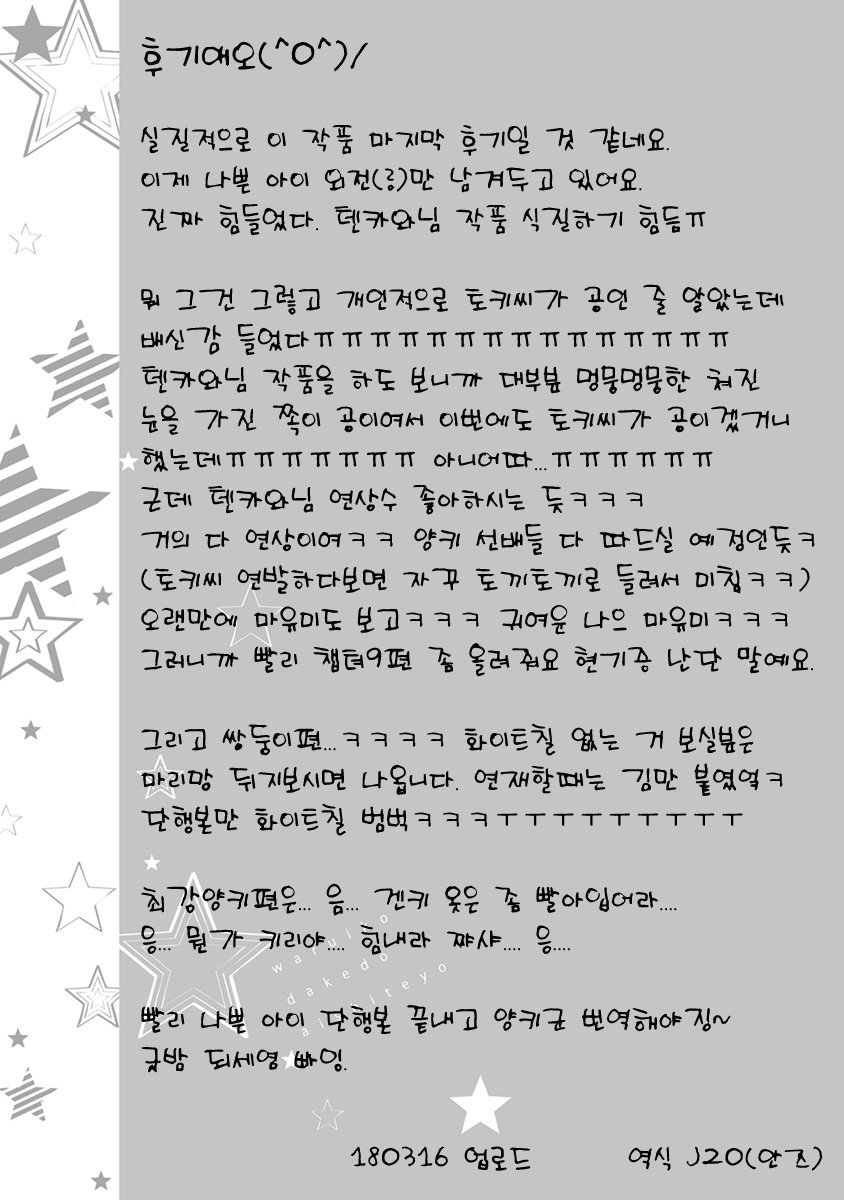 후기애오(^0^)/
실질적으로 이 작품 마지막 후기일 것 같네요.
이제 나쁜 아이 외전(?)만 남겨두고 있어요.
진짜 힘들었다. 텐카와님 작품 식질하기 힘듬ㅠ
뭐 그건 그렇고 개인적으로 토키씨가 공인 줄 알았는데
배신감 들었다ㅠㅠㅠㅠㅠㅠㅠㅠㅠㅠㅠㅠㅠㅠㅠ
텐카와님 작품을 하도 보니까 대부분 멍뭉멍뭉한 쳐진
눈을 가진 쪽이 공이여서 이번에도 토키씨가 공이겠거니
했는데ㅠㅠㅠㅠㅠㅠㅠ 아니어따...ㅠㅠㅠㅠㅠㅠ
근데 텐카와님 연상수 좋아하시는 듯ㅋㅋㅋ
거의 다 연상이여ㅋㅋ 양키 선배들 다 따드실 예정인듯ㅋ
(토키씨 연발하다보면 자꾸 토끼토끼로 들려서 미침ㅋㅋ)
오랜만에 마유미도 보고ㅋㅋㅋ 귀여운 나으 마유미ㅋㅋㅋ
그러니까 빨리 챕터9편 좀 올려줘요 현기증 난단 말예요.
그리고 쌍둥이편...ㅋㅋㅋㅋ 화이트칠 없는 거 보실분은
마리망 뒤지보시면 나옵니다. 연재할때는 김만 붙였엌ㅋ
단행본만 화이트칠 범벅ㅋㅋㅋㅜㅜㅜㅜㅜㅜㅜㅜㅜ
최강양키편은... 음... 겐키 옷은 좀 빨아입어라....
응... 뭔가 키리야.... 힘내라 쨔샤.... 응....
waruiko
dakedo
aishiteyo
빨리 나쁜 아이 단행본 끝내고 양키군 번역해야징~
굿밤 되세영 빠잉.
180316 업로드 역식 J20(안즈)